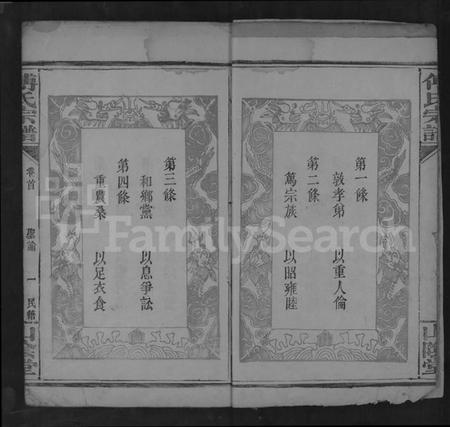 第一條
敦孝弟 以重人倫
第二條
篤宗族 以昭雍睦
第三條
和鄉黨 以息爭訟
第四條
重農桑 以足衣食
傅氏宗譜
卷首
聖諭
一
民籍
堂
傅氏宗譜
堂
FamilySearch